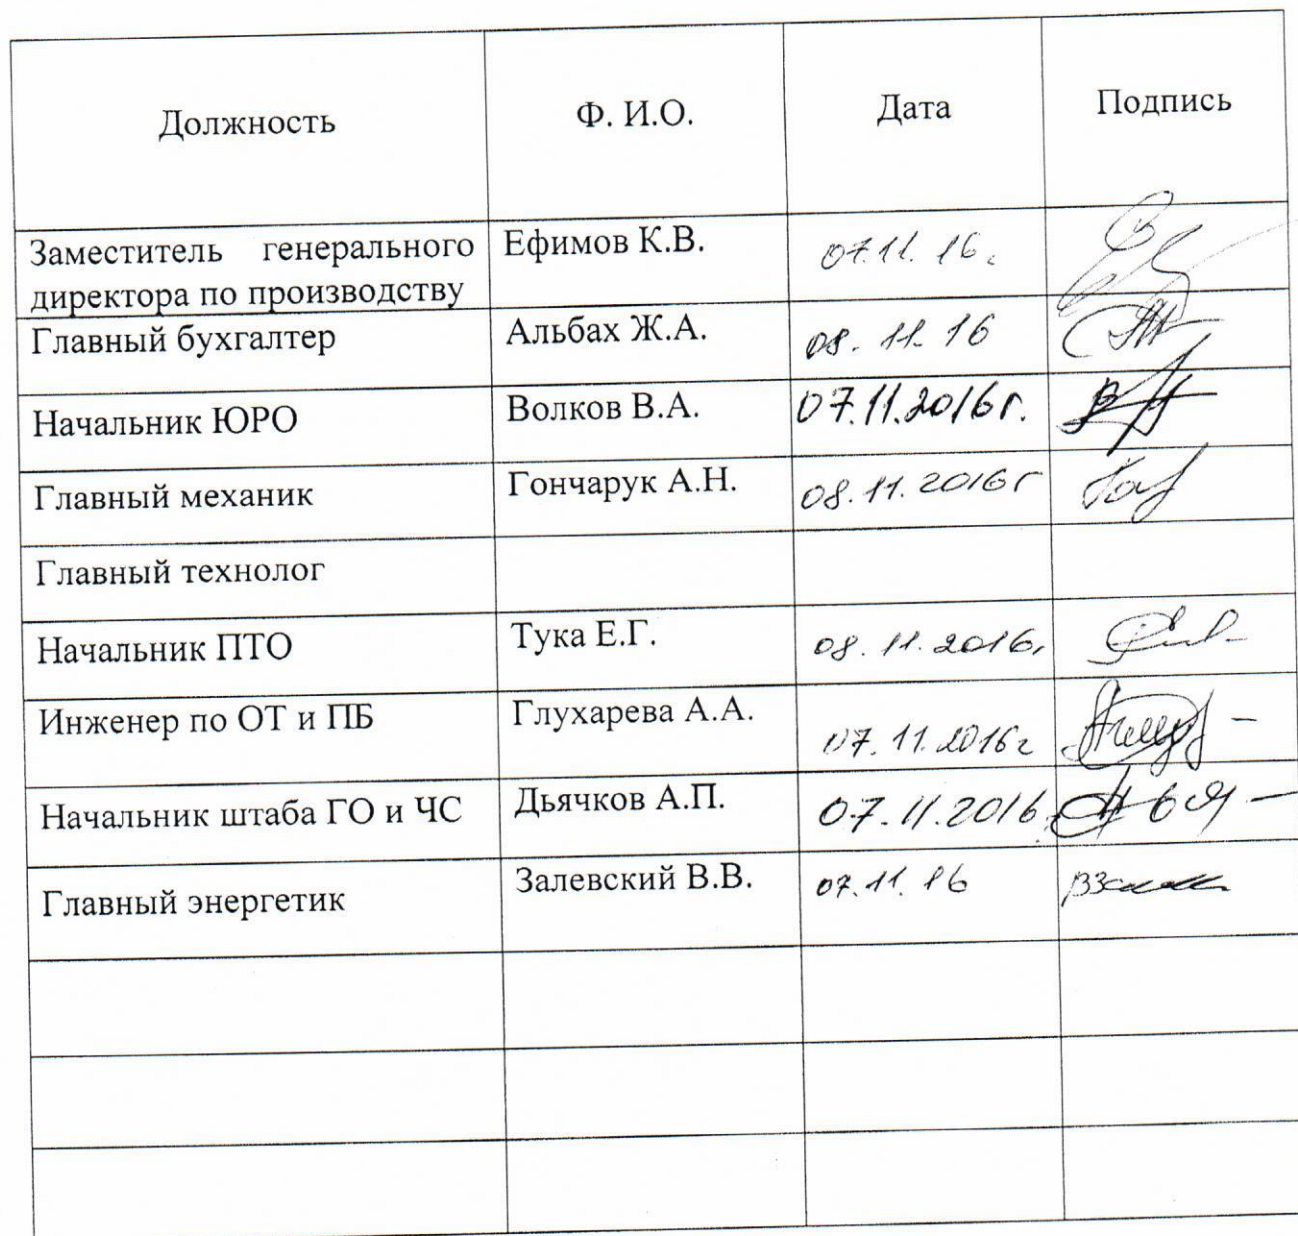 Должность Ф. И.О. Дата Подпись
Заместитель генерального Ефимов К.В. 07.11.16г.
директора по производству
Главный бухгалтер Альбах Ж.А. 08.11.16
Начальник ЮРО Волков В.А. 07.11.2016г.
Главный механик Гончарук А.Н. 08.11.2016г
Главный технолог
Начальник ПТО Тука Е.Г. 08.11.2016г
Инженер по ОТ и ПБ Глухарева А.А. 07.11.2016г
Начальник штаба ГО и ЧС Дьячков А.П. 07.11.2016
Главный энергетик Залевский В.В. 07.11.16